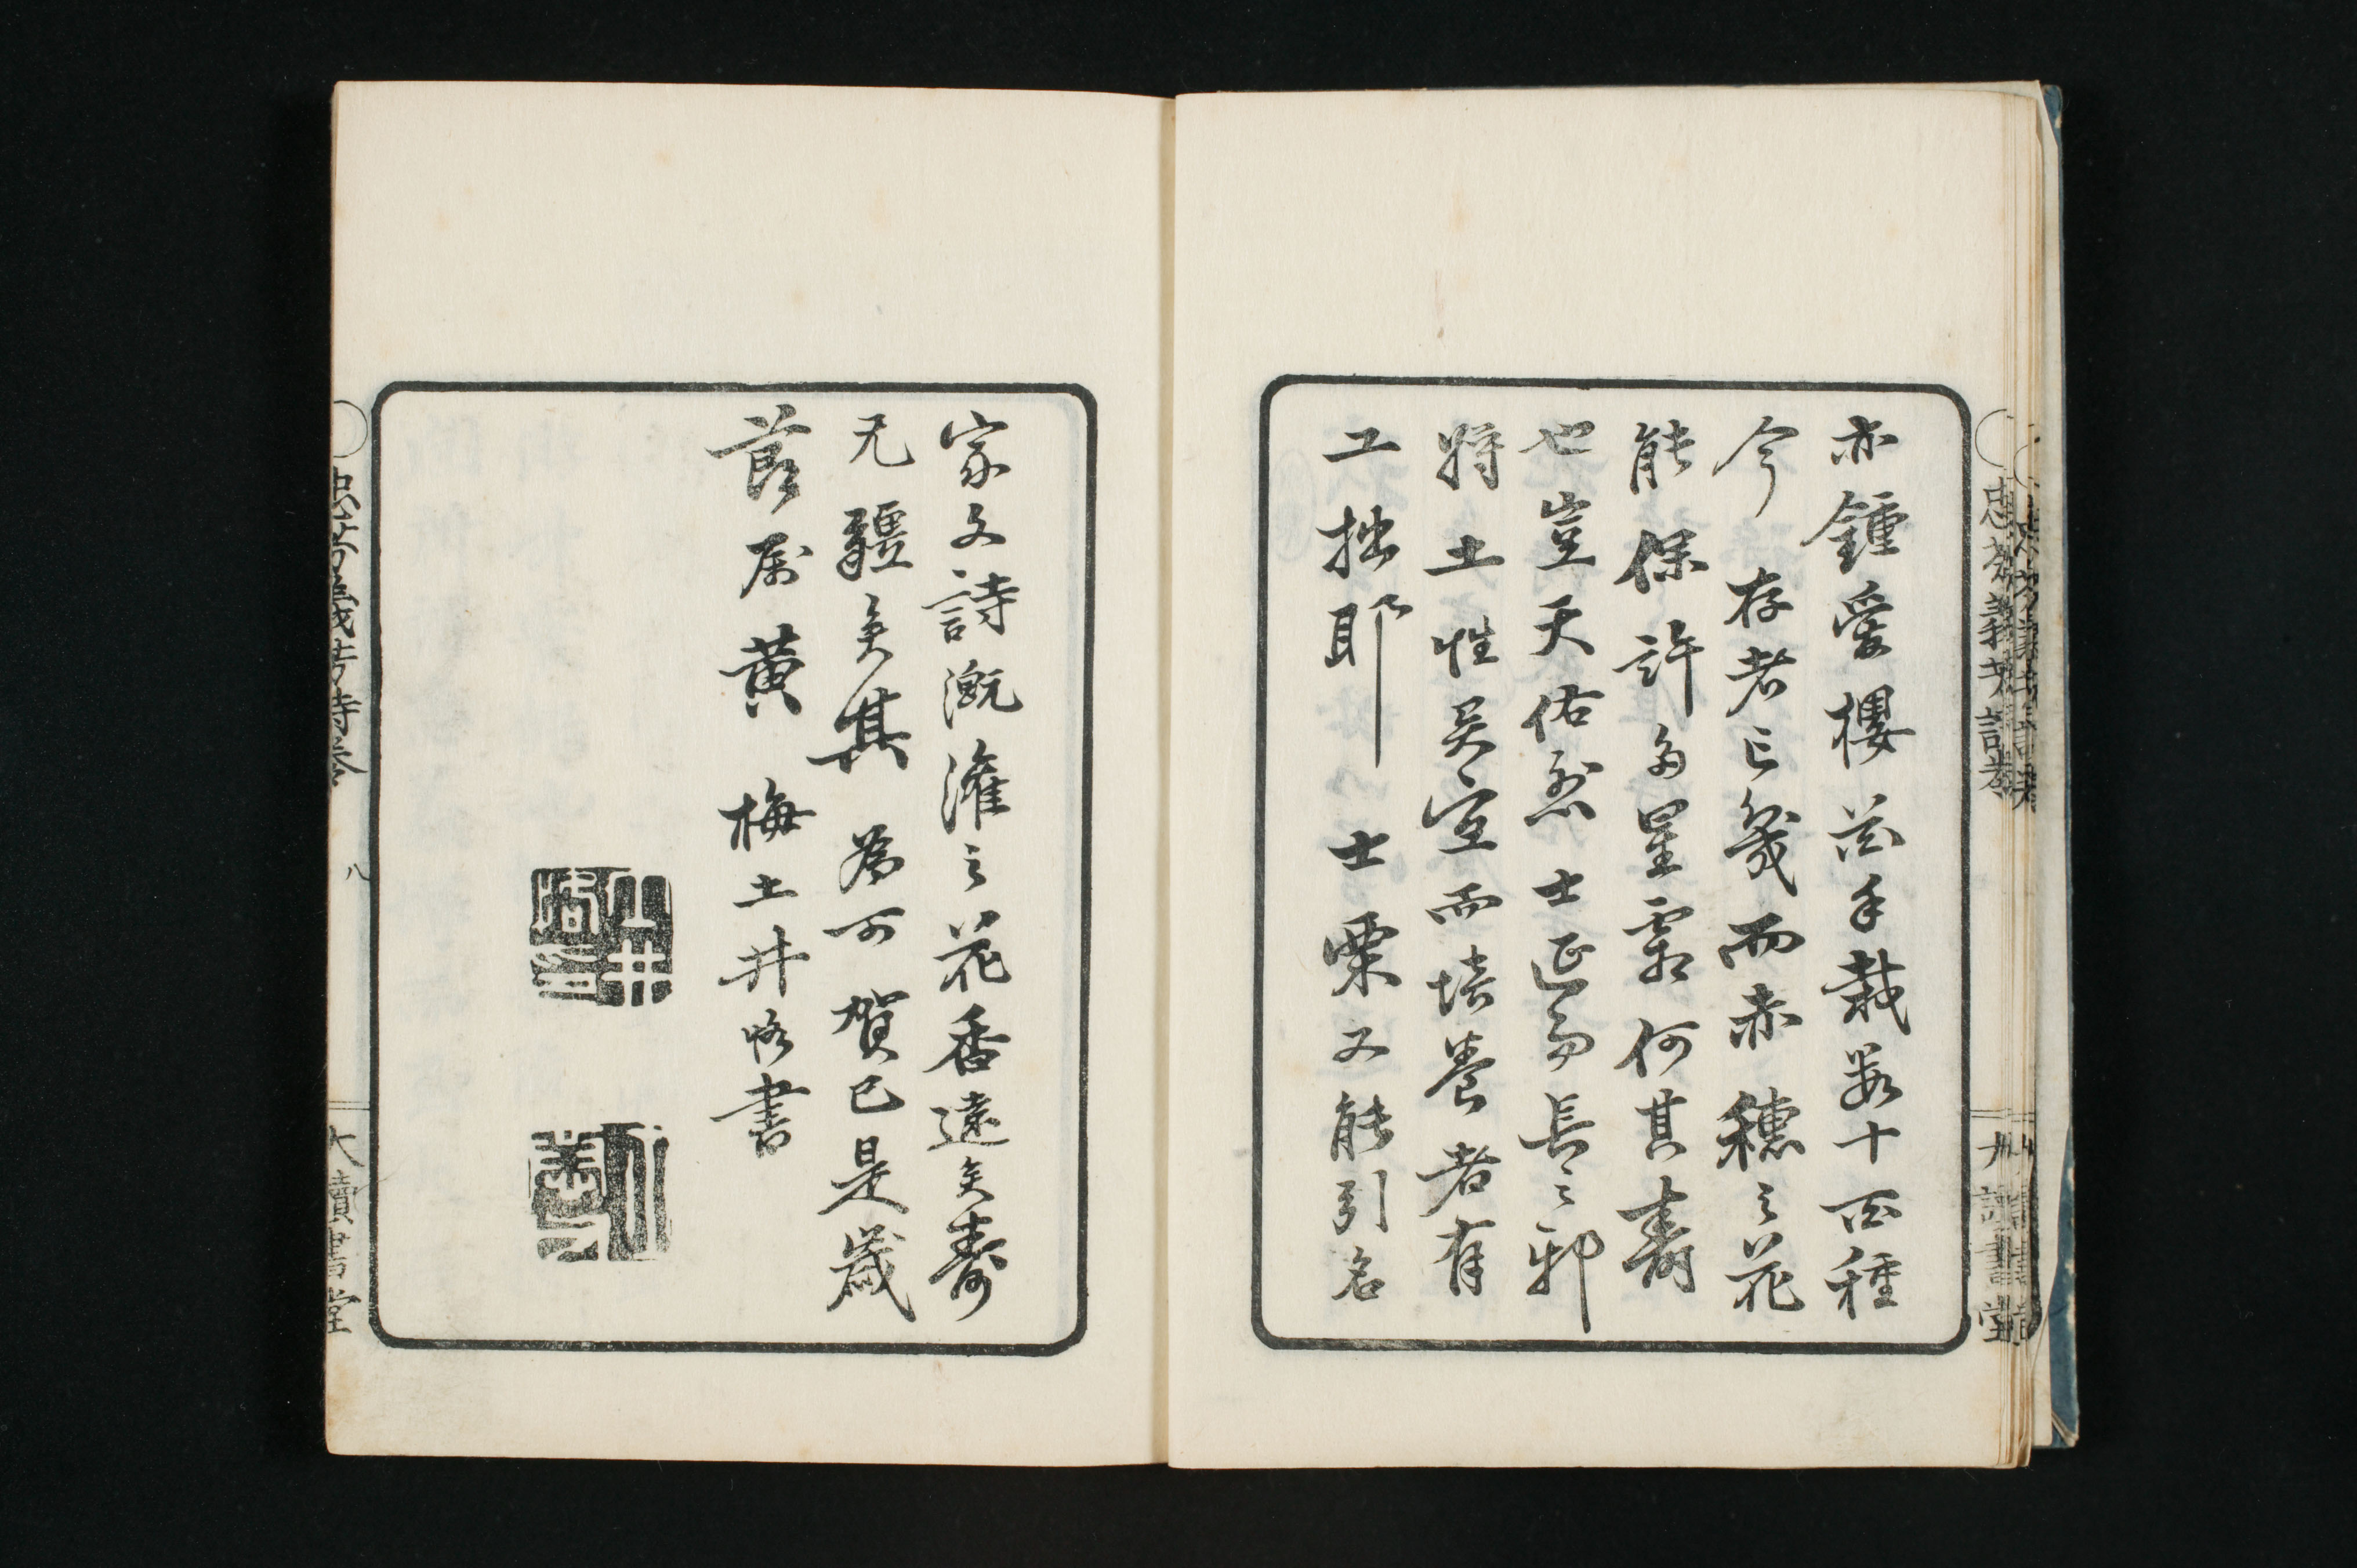 忠芬義芳詩巻
讀書堂
亦鍾愛櫻花手栽数十百種
今存者亡幾而赤穗之花
能保許多星霜何其壽
也豈天佑烈士延長之邪
將土性異宜而培養者有
工拙耶士栗又能引名
家文詩漑灌之花香遠矣壽
无疆矣其為可賀已是歳
節属黄梅土井恪書
忠芬義芳詩巻
八
讀書堂